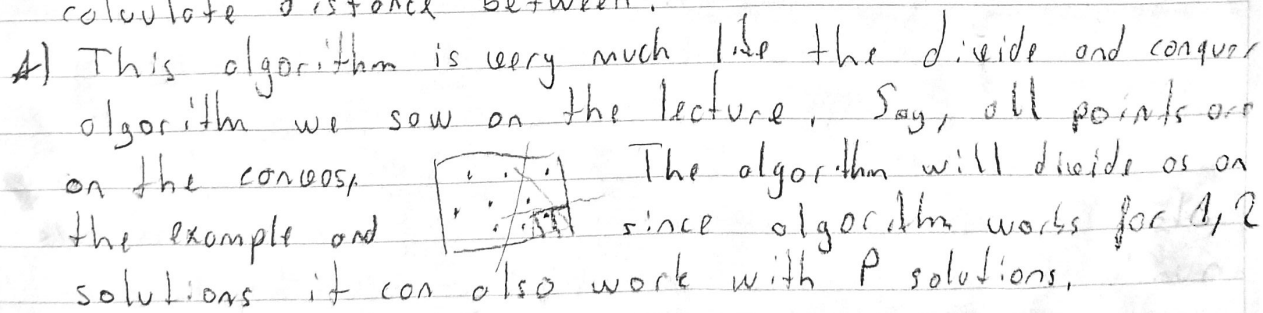 calculate distance between.
4) This algorithm is very much like the divide and conquer
algorithm we saw on the lecture. Say, all points are
on the canvas, The algorithm will divide as on
the example and since algorithm works for 1, 2
solutions it can also work with P solutions.